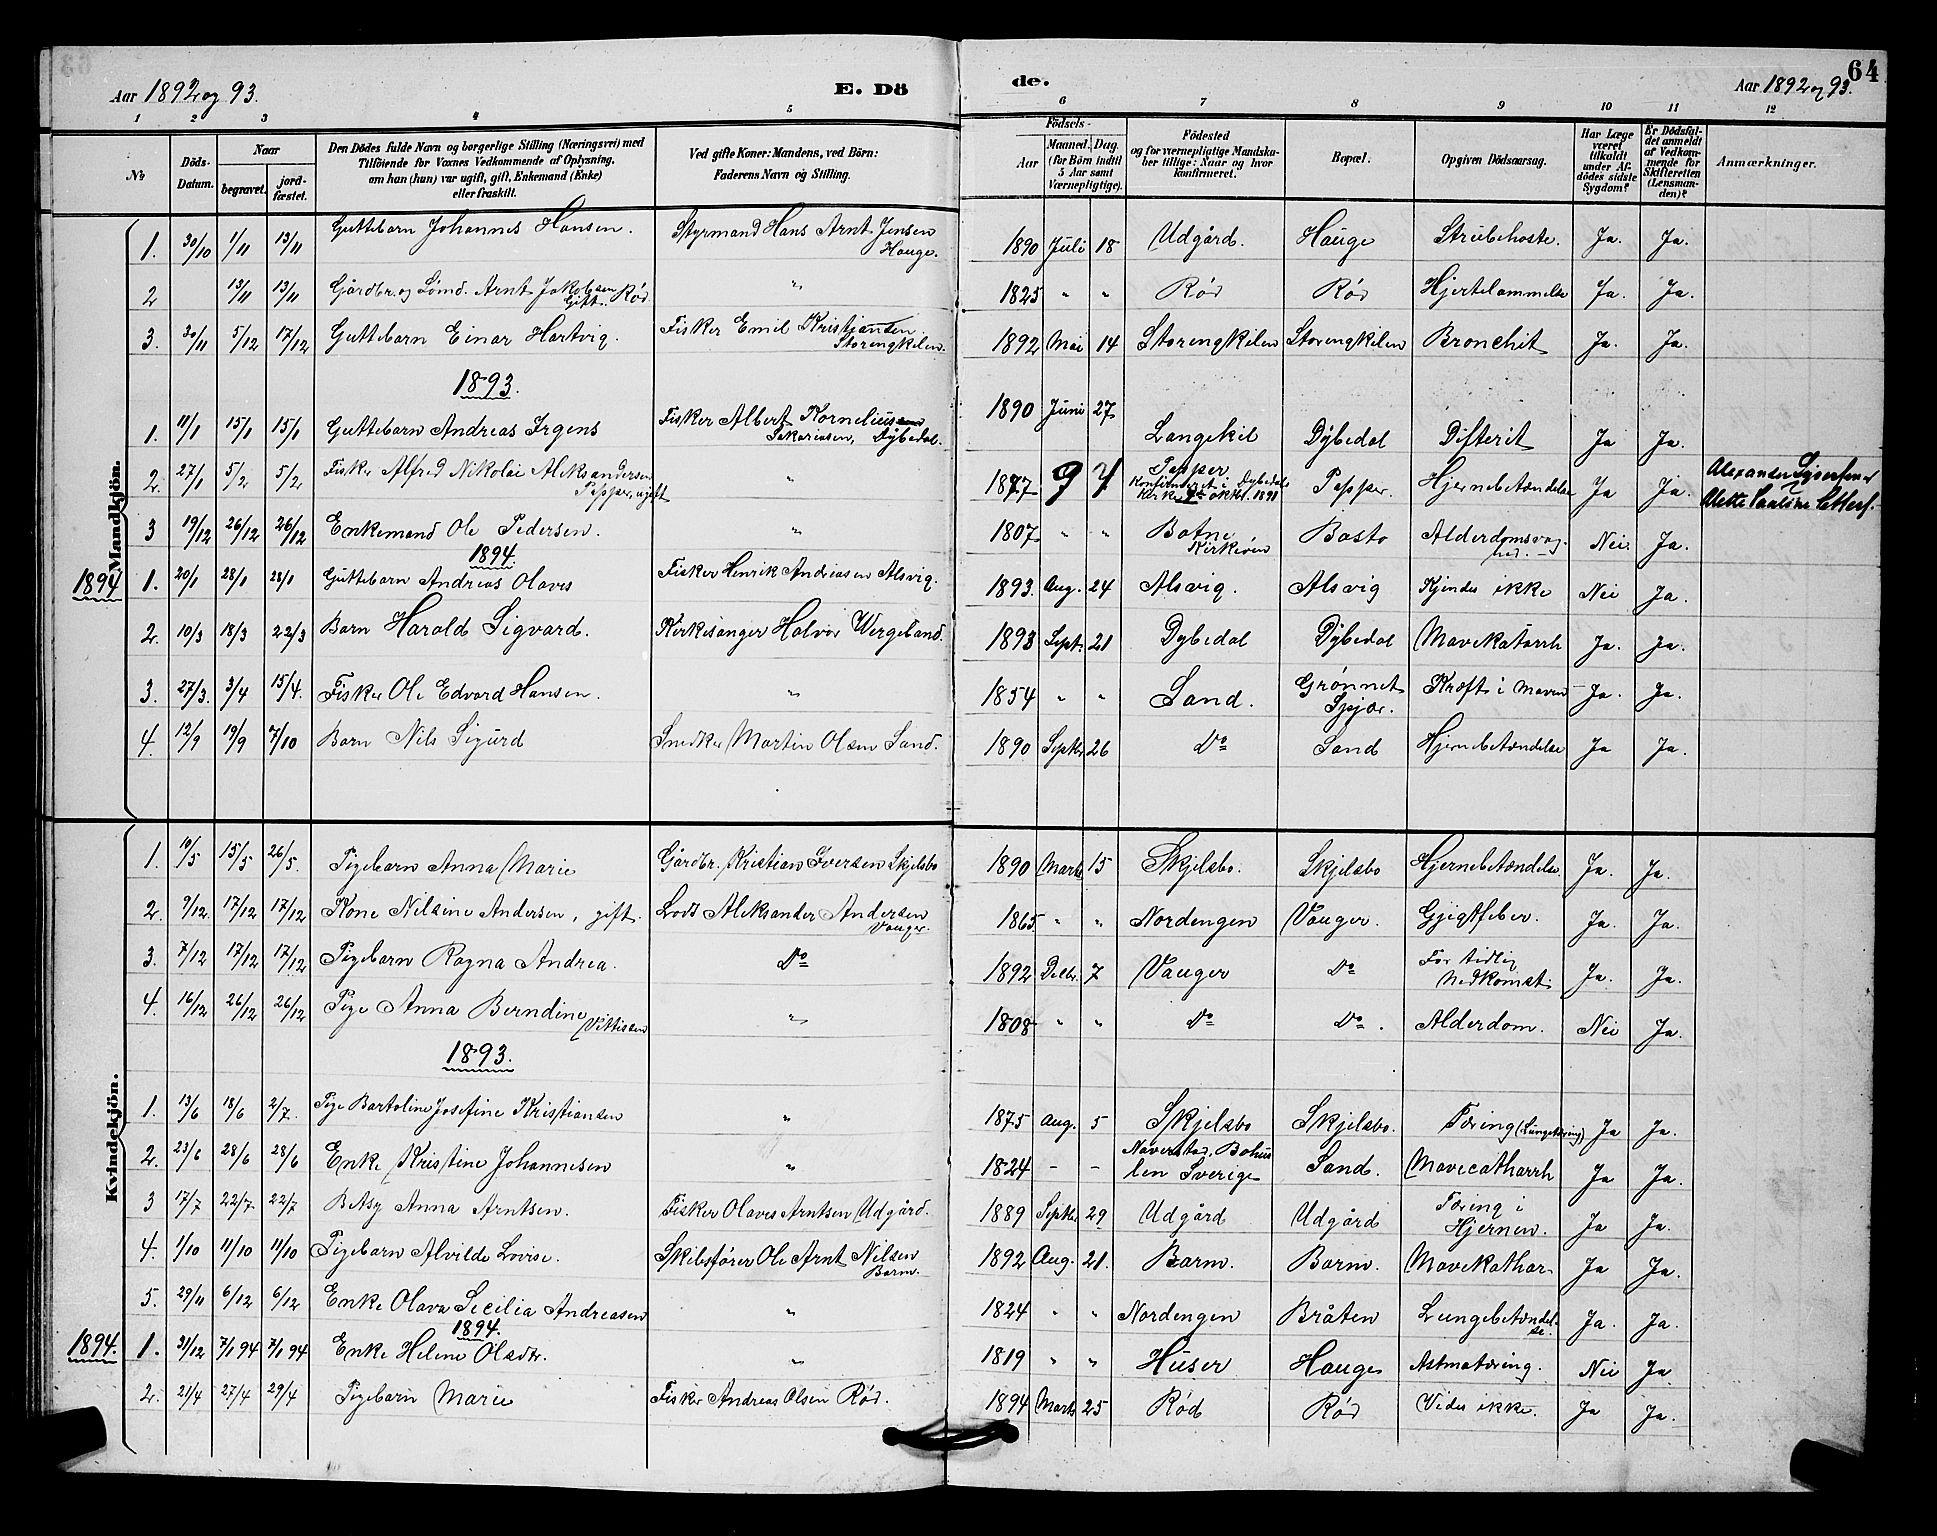 64
Aar 1892 og 93.
E. Dö
de.
Aar 1892 og 93.
1 2 3 4 5 6 7 8 9 10 11 12
No
Döds-Datum.
Naar
begravet.
jord-fæstet.
Den Dödes fulde Navn og borgerlige Stilling (Næringsvei) med
Tilföiende for Voxnes Vedkommende af Oplysning,
om han (hun) var ugift, gift, Enkemand (Enke)
eller fraskilt.
Ved gifte Koner: Mandens, ved Börn:
Faderens Navn og Stilling.
Födsels-
Aar
Maaned. Dag.
(for Börn indtil
5 Aar samt
Værnepligtige).
Födested
og for værnepligtige Mandska-
ber tillige: Naar og hvor
konfirmeret.
Bopæl.
Opgiven Dödsaarsag.
Har Læge
været
tilkaldt
under Af-
dödes sidste
Sygdom?
Er Dödsfal-
det anmeldt
af Vedkom-
mende for
Skifteretten
(Lensman-
den)?
Anmærkninger.
Mandkjön.
1. 30/10 1/11 13/11 Guttebarn Johannes Hansen. Styrmand Hans Arnt Jensen Hauge. 1890 Juli 18 Udgård. Hauge Strubehoste. Ja. Ja.
2 13/11 13/11 Gårdbr. og Lømd. Arnt Jakobsen Rød Gift. " 1825 " " Rød Rød Hjertelammelse Ja. Ja.
3. 30/11 5/12 17/12 Guttebarn Einar Hartvig. Fisker Emil Kristiansen Storengkilen. 1892 Mai 14 Storengkilen Storengkilen Bronchit Ja. Ja.
1893.
1. 11/1 15/1 15/1 Guttebarn Andreas Irgens Fisker Albert Kornelius Sakariasen, Dÿbedal. 1890 Juni 27 Langekil Dÿbedal Difterit Ja Ja.
2. 27/1 5/2 5/2 Fisker Alfred Nikolai Aleksandersen Pepper, ugift " 1877 9 7 Pepper Konfirmeret i Dybedals Kirke oktbr. 1891 Pepper. Hjernebetændelse Ja Ja. Alexander
3 19/12 26/12 26/12 Enkemand Ole Pedersen. " 1807 " " Botne Kirkeøen Basto Alderdomsvaghed. Nei. Ja.
1894.
1894 1. 20/1 28/1 28/1 Guttebarn Andreas Olaves Fisker Henrik Andreasen Alsvig. 1893. Aug. 24 Alsvig. Alsvig Kjendes ikke Nei Ja.
2. 10/3 18/3 22/3 Barn Harald Sigvard. Kirkesanger Halvor Wergeland. 1893 Sept. 21 Dybedal Dÿbedal Mavekatarrh Ja. Ja.
3. 27/3. 3/4 15/4. Fisker Ole Edvard Hansen. " 1854 " " Sand. Grønnet Spjær. Kræft i Maven Ja. Ja.
4. 12/9 19/9 7/10 Barn Nils Sigurd Snedker Martin Olsen Sand. 1890 Septbr 26 Do Sand Hjernebetændelse Ja Ja.
Kvindekjön.
1. 10/5 15/5 26/5 Pigebarn Anna Marie Gårdbr. Kristian Iversen Skjelsbo 1890 Marts 15 Skjelsbo. Skjelsbo Hjernebetændelse. Ja. Ja.
2. 9/12. 17/12 17/12 Kone Nilsine Andersen, gift. Lods Aleksander Andersen Vauger. 1865 " " Nordengen Vauger. Gjigtfeber. Ja. Ja.
3. 7/12 17/12 17/12 Pigebarn Ragna Andrea. Do 1892 Decbr. 7 Vauger Do For tidlig Nedkomst Ja. Ja.
4. 16/12 26/12 26/12 Pige Anna Berndine Vittissen " 1808 " " Do Do. Alderdom. Nei Ja.
1893.
1. 13/6 18/6 2/7. Pige Bartoline Josefine Kristiansen " 1875 Aug. 5 Skjelsbo Skjelsbo. Tæring (Lungetæring) Ja Ja.
2. 23/6 28/6 28/6 Enke Kristine Johannesen " 1824 - - Naverstad. Bohuslen Sverige Sand. Mavecatharrh Ja Ja.
3 17/7 22/7 22/7 Betsy Anna Arntsen. Fisker Olaves Arntsen Udgård. 1889 Septbr. 29 Udgård Udgård Tæring i Hjernen. Ja Ja.
4. 1/10 11/10 11/10 Pigebarn Alvilde Lovise. Skibsfører Ole Arnt Nilsen Barm. 1892 Aug. 21. Barm. Barm. Mavekathar Ja Ja.
5. 29/11 6/12 6/12 Enke Olava Secilia Andreasen " 1824 " " Nordengen Bråten Lungebetændelse. Ja. Ja.
1894.
1894. 1. 31/12 7/1 94 7/1 94 Enke Helene Olsdtr. " 1819 " " Huser Hauge Astmatæring. Nei Ja.
2. 21/4 27/4 29/4 Pigebarn Marie Fisker Andreas Olsen Rød. 1894 Marts 25 Rød Rød Vides ikke. Ja Ja.